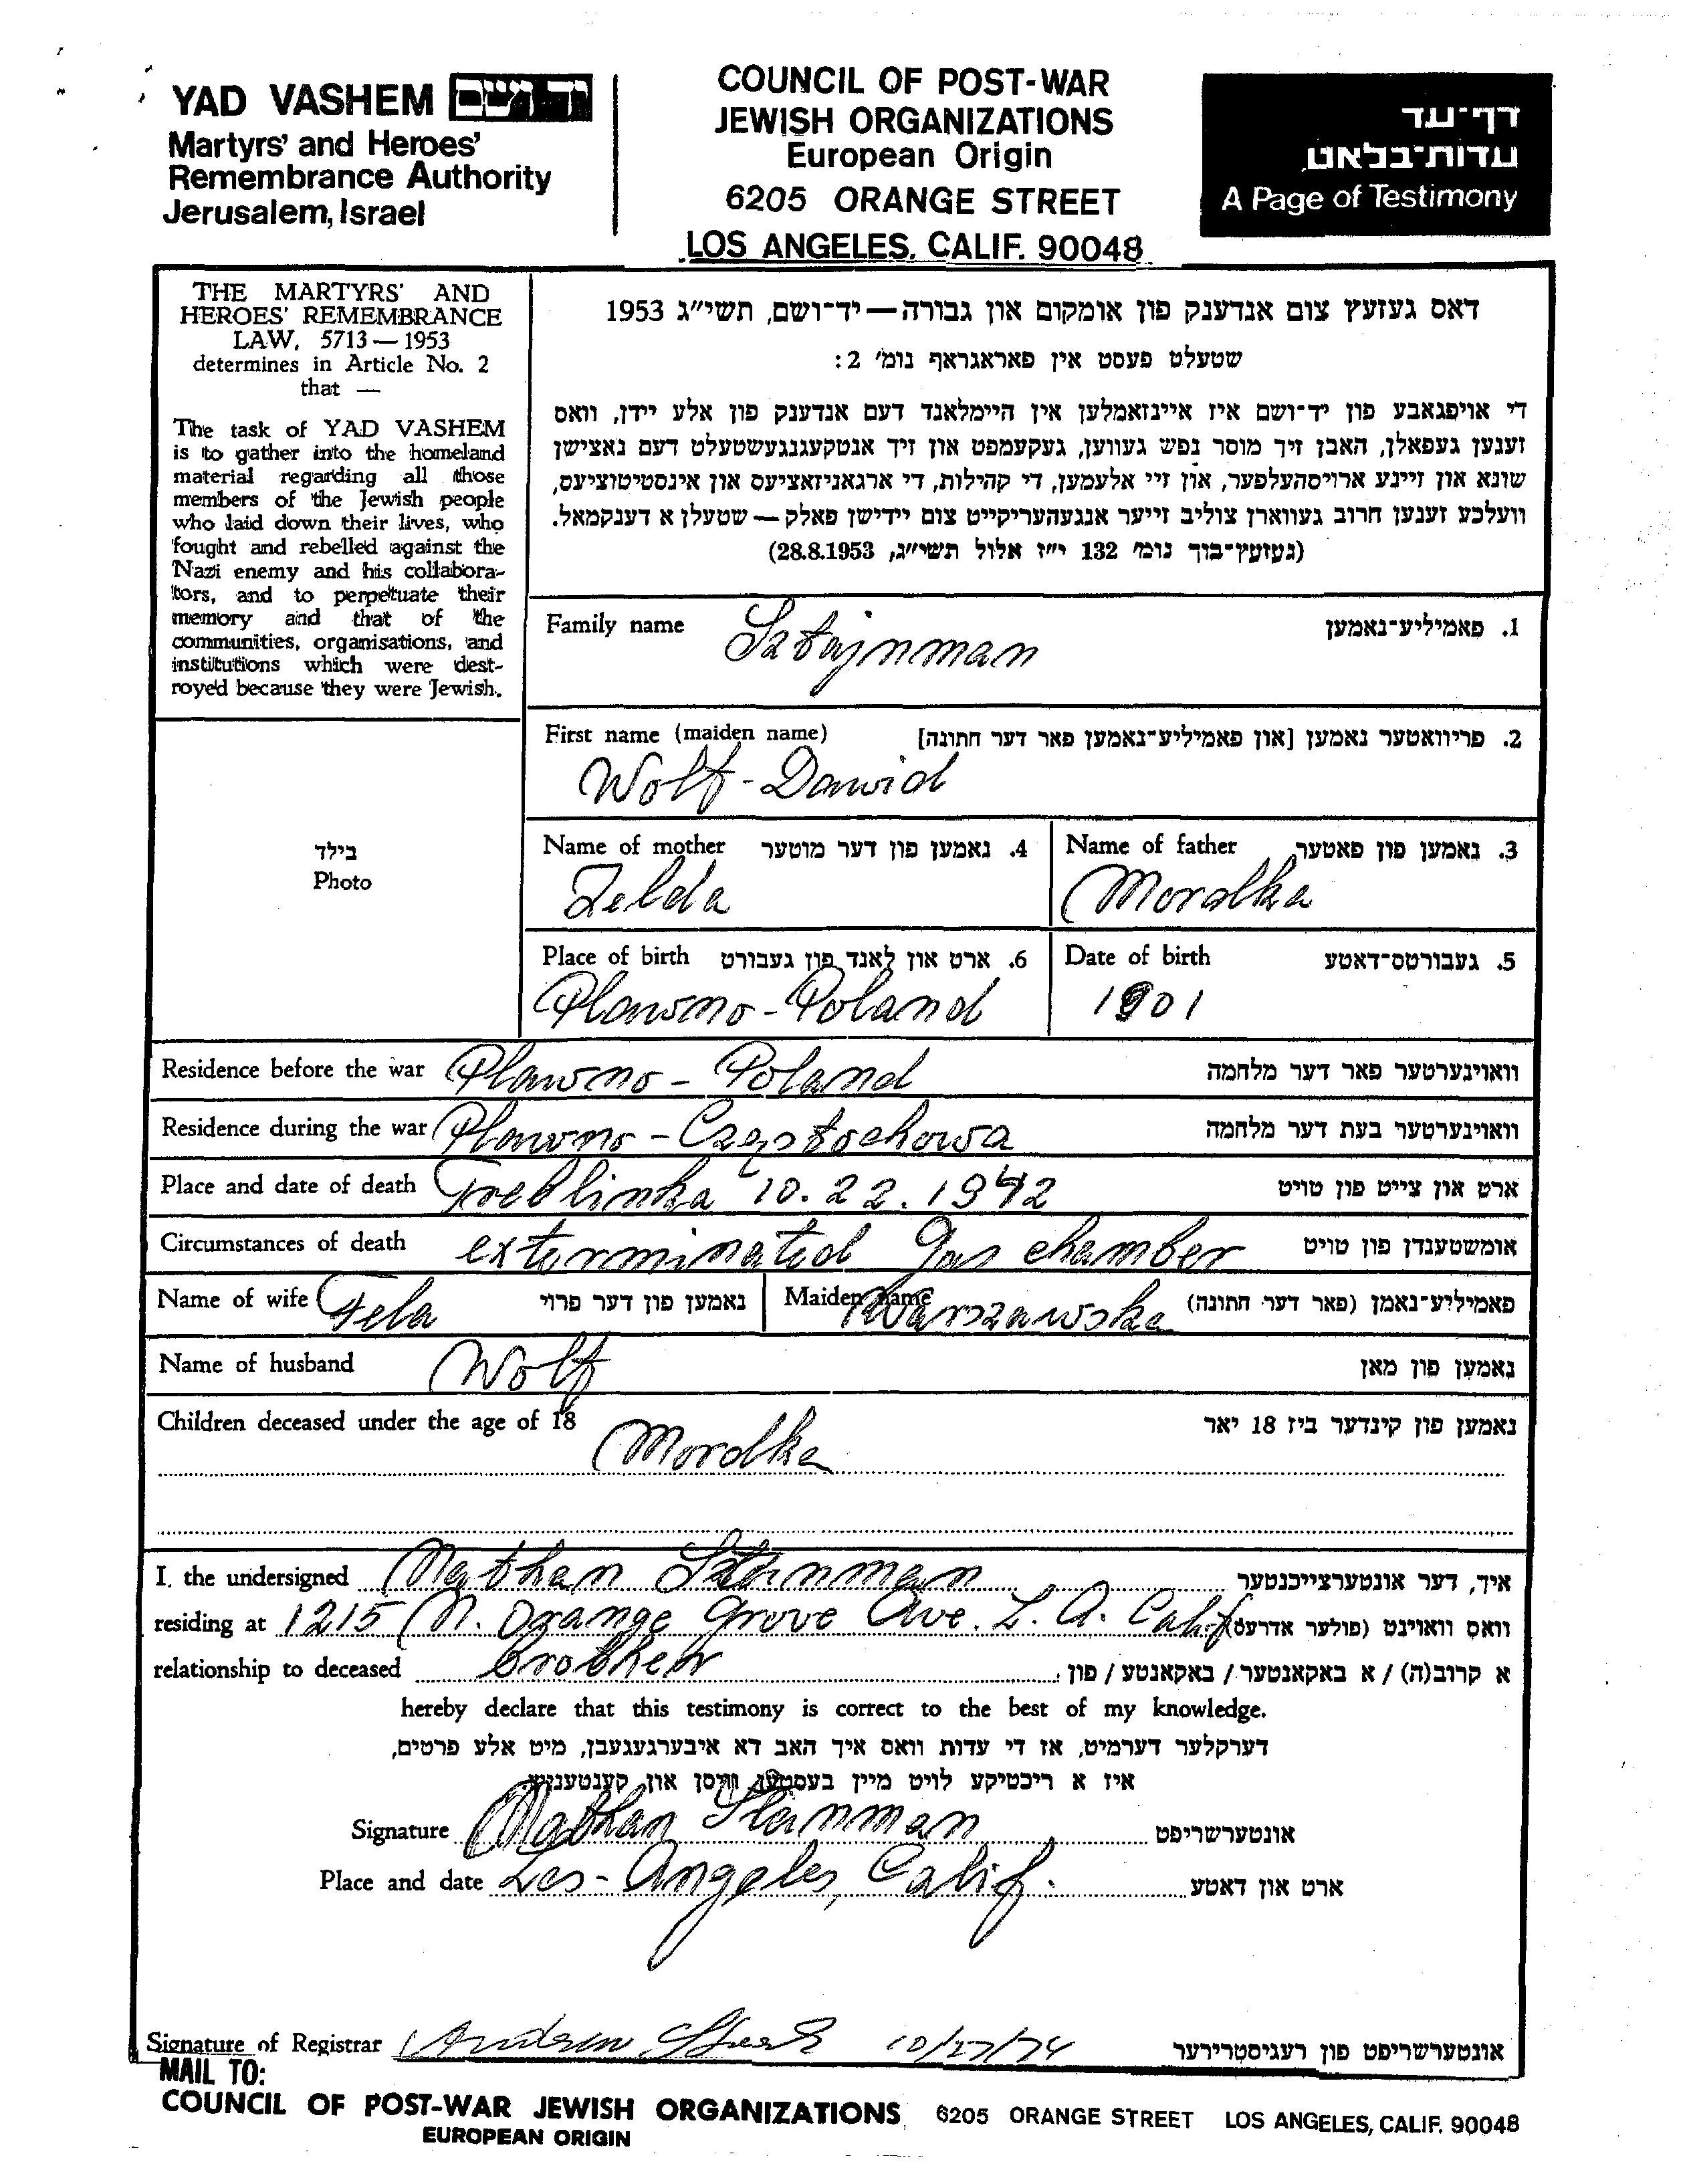 YAD VASHEM יד ושם
Martyrs' and Heroes'
Remembrance Authority
Jerusalem, Israel
COUNCIL OF POST-WAR
JEWISH ORGANIZATIONS
European Origin
6205 ORANGE STREET
LOS ANGELES, CALIF. 90048
דף־עד
עדות־בלאט
A Page of Testimony
THE MARTYRS' AND
HEROES' REMEMBRANCE
LAW, 5713 — 1953
determines in Article No. 2
that —
The task of YAD VASHEM
is to gather into the homeland
material regarding all those
members of the Jewish people
who laid down their lives, who
fought and rebelled against the
Nazi enemy and his collabora-
tors, and to perpetuate their
memory and that of the
communities, organisations, and
institutions which were dest-
royed because they were Jewish.
דאס געזעץ צום אנדענק פון אומקום און גבורה — יד־ושם, תשי״ג 1953
שטעלט פעסט אין פאראגראף נומ׳ 2:
די אויפגאבע פון יד־ושם איז איינזאמלען אין היימלאנד דעם אנדענק פון אלע יידן, וואס
זענען געפאלן, האבן זיך מוסר נפש געווען, געקעמפט און זיך אנטקעגנגעשטעלט דעם נאצישן
שונא און זיינע ארויסהעלפער, און זיי אלעמען, די קהילות, די ארגאניזאציעס און אינסטיטוציעס,
וועלכע זענען חרוב געווארן צוליב זייער אנגעהעריקייט צום יידישן פאלק — שטעלן א דענקמאל.
(געזעץ־בוך נומ׳ 132 י״ז אלול תשי״ג, 28.8.1953)
Family name Sztajnman 1. פאמיליע־נאמען
First name (maiden name) 2. פריוואטער נאמען [און פאמיליע־נאמען פאר דער חתונה]
Wolf-Dawid
בילד
Photo
Name of mother 4. נאמען פון דער מוטער
Zelda
Name of father 3. נאמען פון פאטער
Mordka
Place of birth 6. ארט און לאנד פון געבורט
Plawno-Poland
Date of birth 5. געבורטס־דאטע
1901
Residence before the war Plawno - Poland וואוינערטער פאר דער מלחמה
Residence during the war Plawno - Częstochowa וואוינערטער בעת דער מלחמה
Place and date of death Treblinka 10.22.1942 ארט און צייט פון טויט
Circumstances of death exterminated gas chamber אומשטענדן פון טויט
Name of wife Fela נאמען פון דער פרוי Maiden name Warszawska פאמיליע־נאמן (פאר דער חתונה)
Name of husband Wolf נאמען פון מאן
Children deceased under the age of 18 נאמען פון קינדער ביז 18 יאר
Mordka
I, the undersigned Nathan Stainman איך, דער אונטערצייכנטער
residing at 1215 N. Orange Grove Ave. L.A. Calif וואס וואוינט (פולער אדרעס)
relationship to deceased brother א קרוב(ה) / א באקאנטער / באקאנטע / פון:
hereby declare that this testimony is correct to the best of my knowledge.
דערקלער דערמיט, אז די עדות וואס איך האב דא איבערגעגעבן, מיט אלע פרטים,
איז א ריכטיקע לויט מיין בעסטן וויסן און קענטעניש.
Signature Nathan Stainman אונטערשריפט
Place and date Los-Angeles, Calif. ארט און דאטע
Signature of Registrar 10/27/74 אונטערשריפט פון רעגיסטרירער
MAIL TO:
COUNCIL OF POST-WAR JEWISH ORGANIZATIONS 6205 ORANGE STREET LOS ANGELES, CALIF. 90048
EUROPEAN ORIGIN